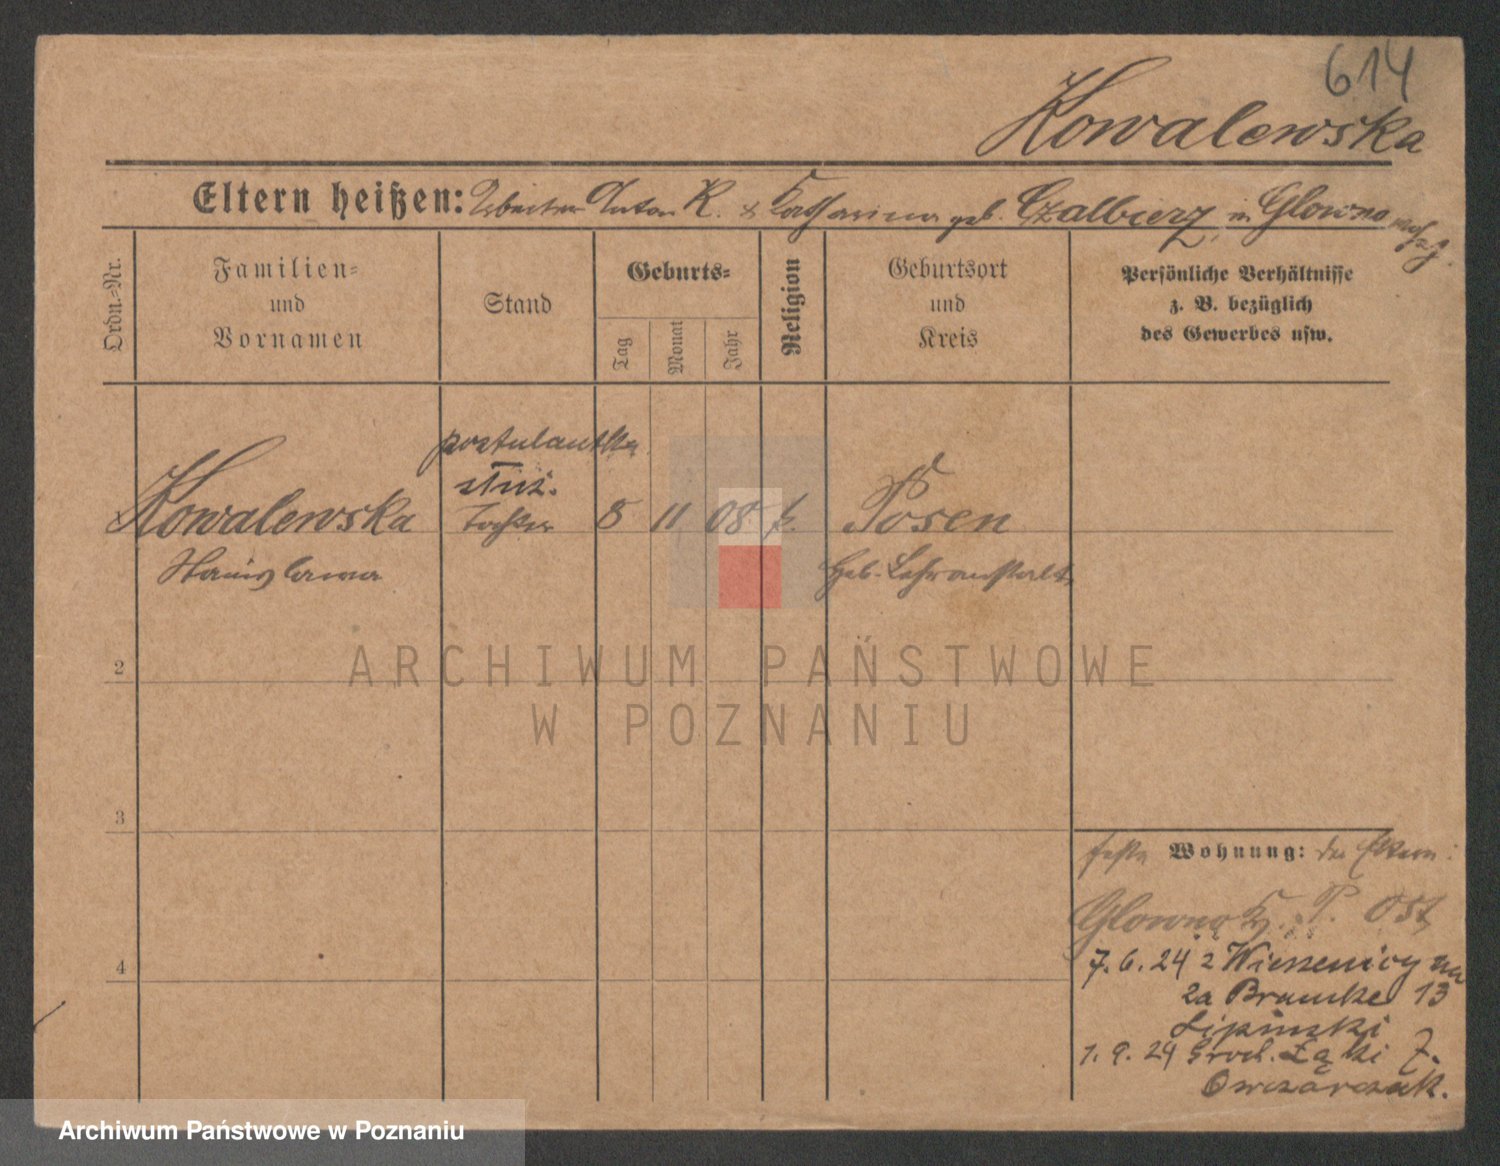 614
Kowalewska
Eltern heißen: Arbeiter Anton K. & Katharina geb. Czalbierz, in Glowno
Ordn.-Nr.
Familien-
und
Vornamen
Stand
Geburts-
Tag
Monat
Jahr
Religion
Geburtsort
und
Kreis
Persönliche Verhältnisse
z. B. bezüglich
des Gewerbes usw.
postulantka
służ.
Kowalewska Tochter 8 11 08 k. Posen
Stanislawa
2
3
4
feste Wohnung: der Eltern:
Glowno P. Ost
7.6.24 z Wierzenicy na
2a Bramke 13
Lipinski
1.9.24 Groch. Łąki 7.
Owczarczak.
ARCHIWUM PAŃSTWOWE
W POZNANIU
Archiwum Państwowe w Poznaniu